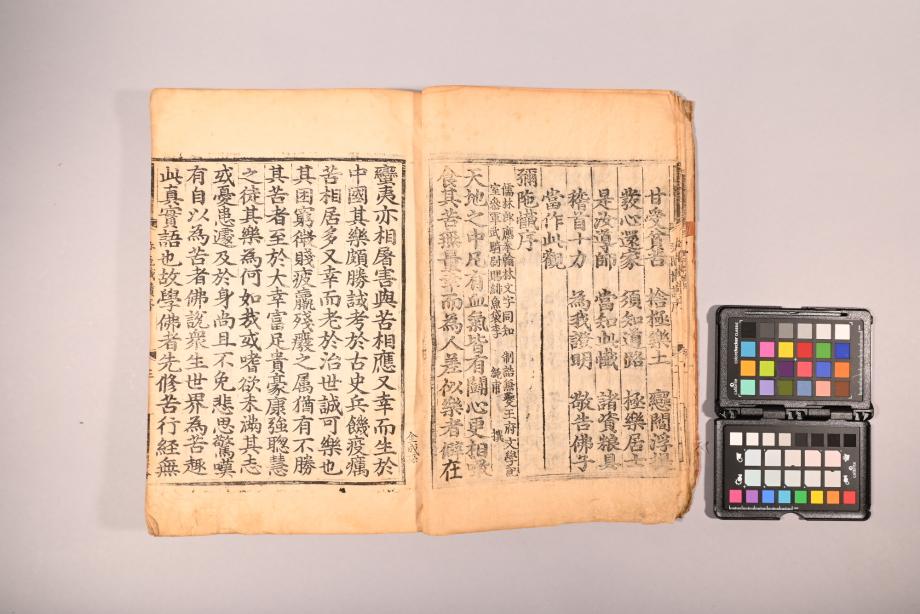 甘受 捨極樂土 閻浮
發心還家 須知道路 極樂居士
是汝導師 當知此懺 諸資粮具
稽首十力 為我證明 敬告佛子
當作此觀
彌陁懺序
儒林郎應奉翰林文字同知 制誥兼 王府文學記
室叅軍武騎尉賜緋魚袋李 純甫 撰
天地之中凡有血氣皆有鬪心更相
食其苦無量幸而為人差似樂者僻在
蠻夷亦相屠害與苦相應又幸而生於
中國其樂頗勝試考於古史兵饑疫癘
苦相居多又幸而老於治世誠可樂也
其困窮微賤疲羸殘癈之属猶有不勝
其苦者至於大幸富足貴豪康強聦慧
之徒其樂為何如哉或嗜欲未滿其志
或憂患遽及於身尚且不免悲思驚嘆
有自以為苦者佛說衆生世界為苦趣
此真實語也故學佛者先修苦行經無